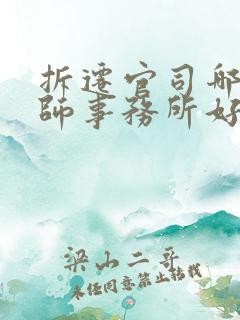 拆遷官司哪
師事務所好
梁山二哥
未经同意禁止转载